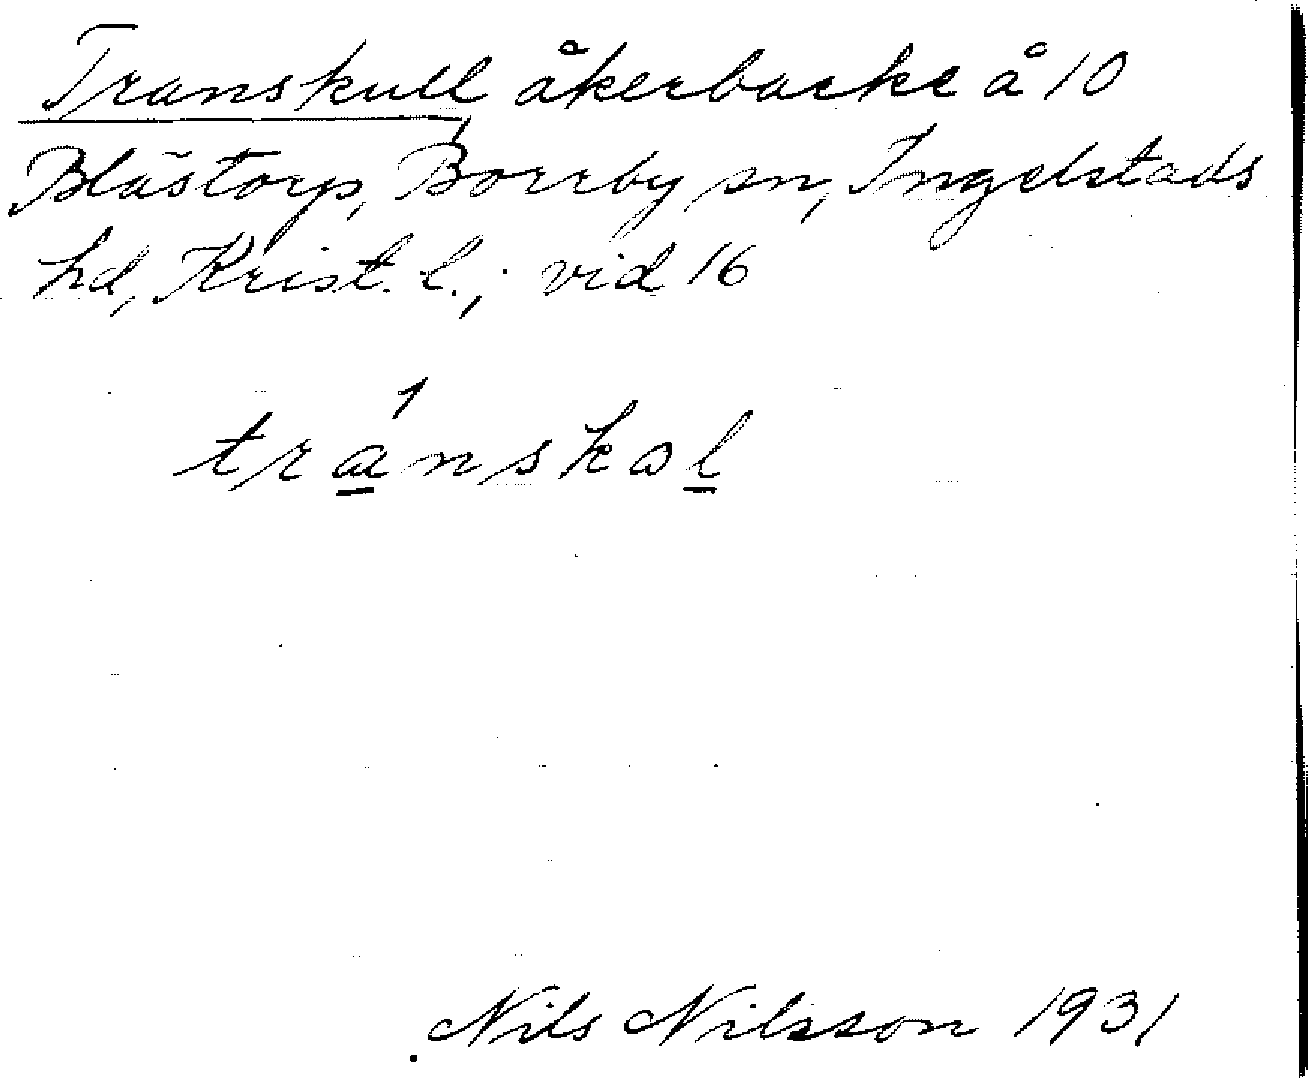 Transkull åkerbacke å 10
Blästorp, Borrby sn, Ingelstads
hd, Krist. l.; vid 16
1
transkωl
Nils Nilsson 1931